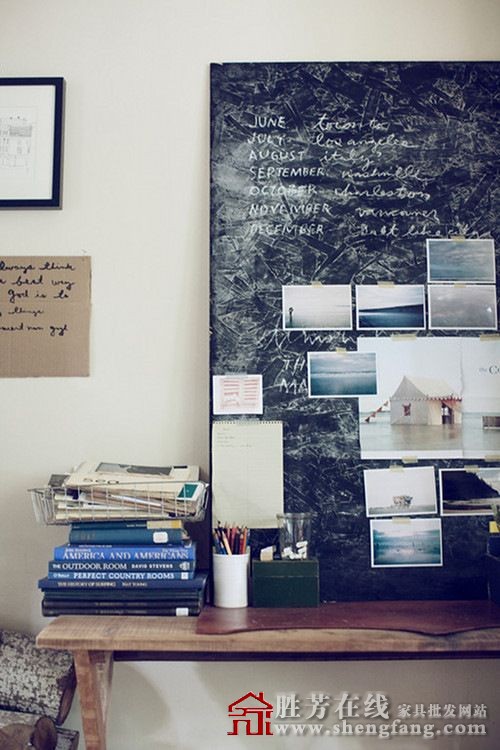 JUNE toronto
JULY los angeles
AUGUST italy
SEPTEMBER nashville
OCTOBER charleston
NOVEMBER vancouver
DECEMBER salt lake city
always think
best way
God is to
things
TH
MA
the
AMERICA AND AMERICANS
THE OUTDOOR ROOM DAVID STEVENS
PERFECT COUNTRY ROOMS
THE HISTORY OF SURFING NAT YOUNG
胜芳在线 家具批发网站
www.shengfang.com